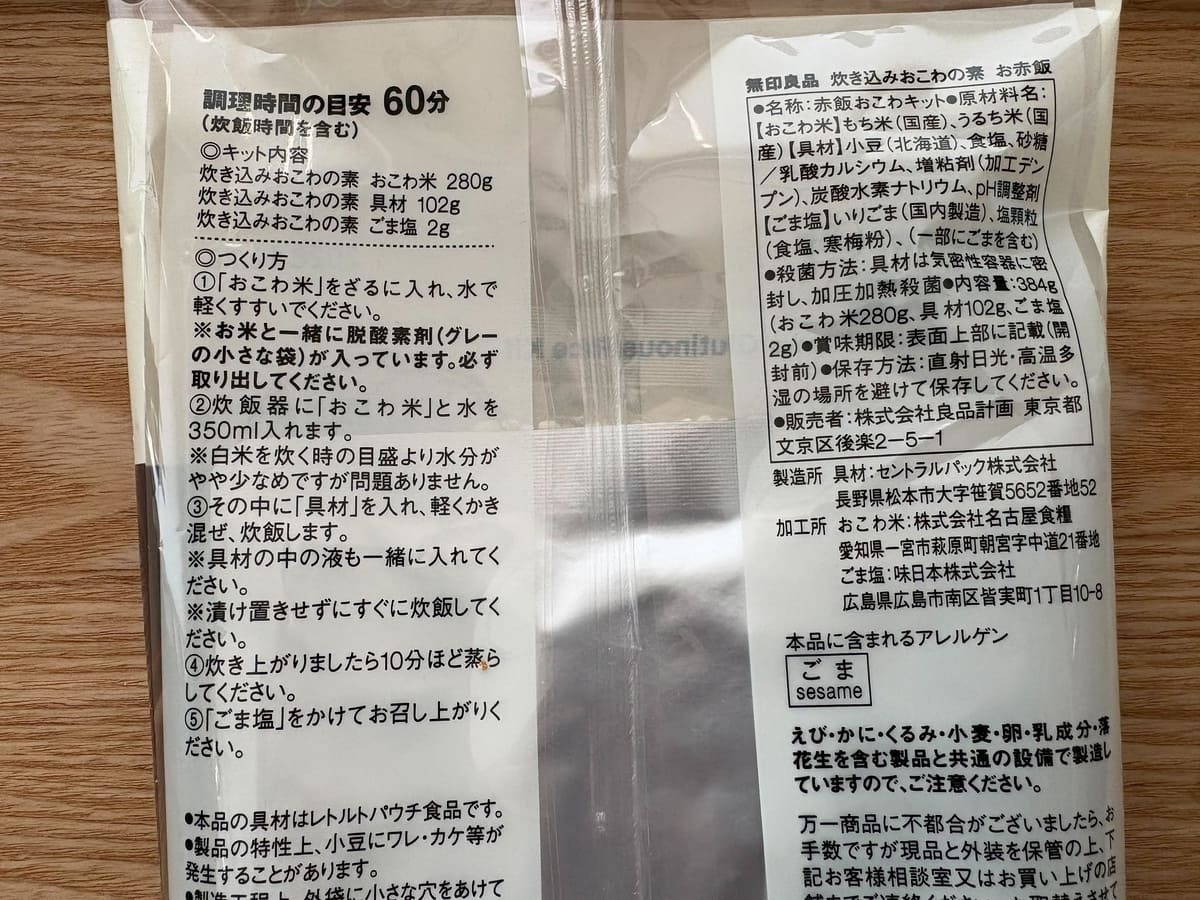 調理時間の目安 60分
(炊飯時間を含む)
◎キット内容
炊き込みおこわの素 おこわ米 280g
炊き込みおこわの素 具材 102g
炊き込みおこわの素 ごま塩 2g
◎つくり方
①「おこわ米」をざるに入れ、水で
軽くすすいでください。
※お米と一緒に脱酸素剤(グレー
の小さな袋)が入っています。必ず
取り出してください。
②炊飯器に「おこわ米」と水を
350ml入れます。
※白米を炊く時の目盛より水分が
やや少なめですが問題ありません。
③その中に「具材」を入れ、軽くかき
混ぜ、炊飯します。
※具材の中の液も一緒に入れてく
ださい。
※漬け置きせずにすぐに炊飯してく
ださい。
④炊き上がりましたら10分ほど蒸ら
してください。
⑤「ごま塩」をかけてお召し上がりく
ださい。
●本品の具材はレトルトパウチ食品です。
●製品の特性上、小豆にワレ・カケ等が
発生することがあります。
●製造工程上、外袋に小さな穴をあけて
無印良品 炊き込みおこわの素 お赤飯
●名称:赤飯おこわキット●原材料名:
【おこわ米】もち米(国産)、うるち米(国
産)【具材】小豆(北海道)、食塩、砂糖
/乳酸カルシウム、増粘剤(加工デン
プン)、炭酸水素ナトリウム、pH調整剤
【ごま塩】いりごま(国内製造)、塩顆粒
(食塩、寒梅粉)、(一部にごまを含む)
●殺菌方法:具材は気密性容器に密
封し、加圧加熱殺菌●内容量:384g
(おこわ米280g、具材102g、ごま塩
2g)●賞味期限:表面上部に記載(開
封前)●保存方法:直射日光・高温多
湿の場所を避けて保存してください。
●販売者:株式会社良品計画 東京都
文京区後楽2-5-1
製造所 具材:セントラルパック株式会社
長野県松本市大字笹賀5652番地52
加工所 おこわ米:株式会社名古屋食糧
愛知県一宮市萩原町朝宮字中道21番地
ごま塩:味日本株式会社
広島県広島市南区皆実町1丁目10-8
本品に含まれるアレルゲン
ごま
sesame
えび・かに・くるみ・小麦・卵・乳成分・落
花生を含む製品と共通の設備で製造し
ていますので、ご注意ください。
万一商品に不都合がございましたら、お
手数ですが現品と外装を保管の上、下
記お客様相談室又はお買い上げの店